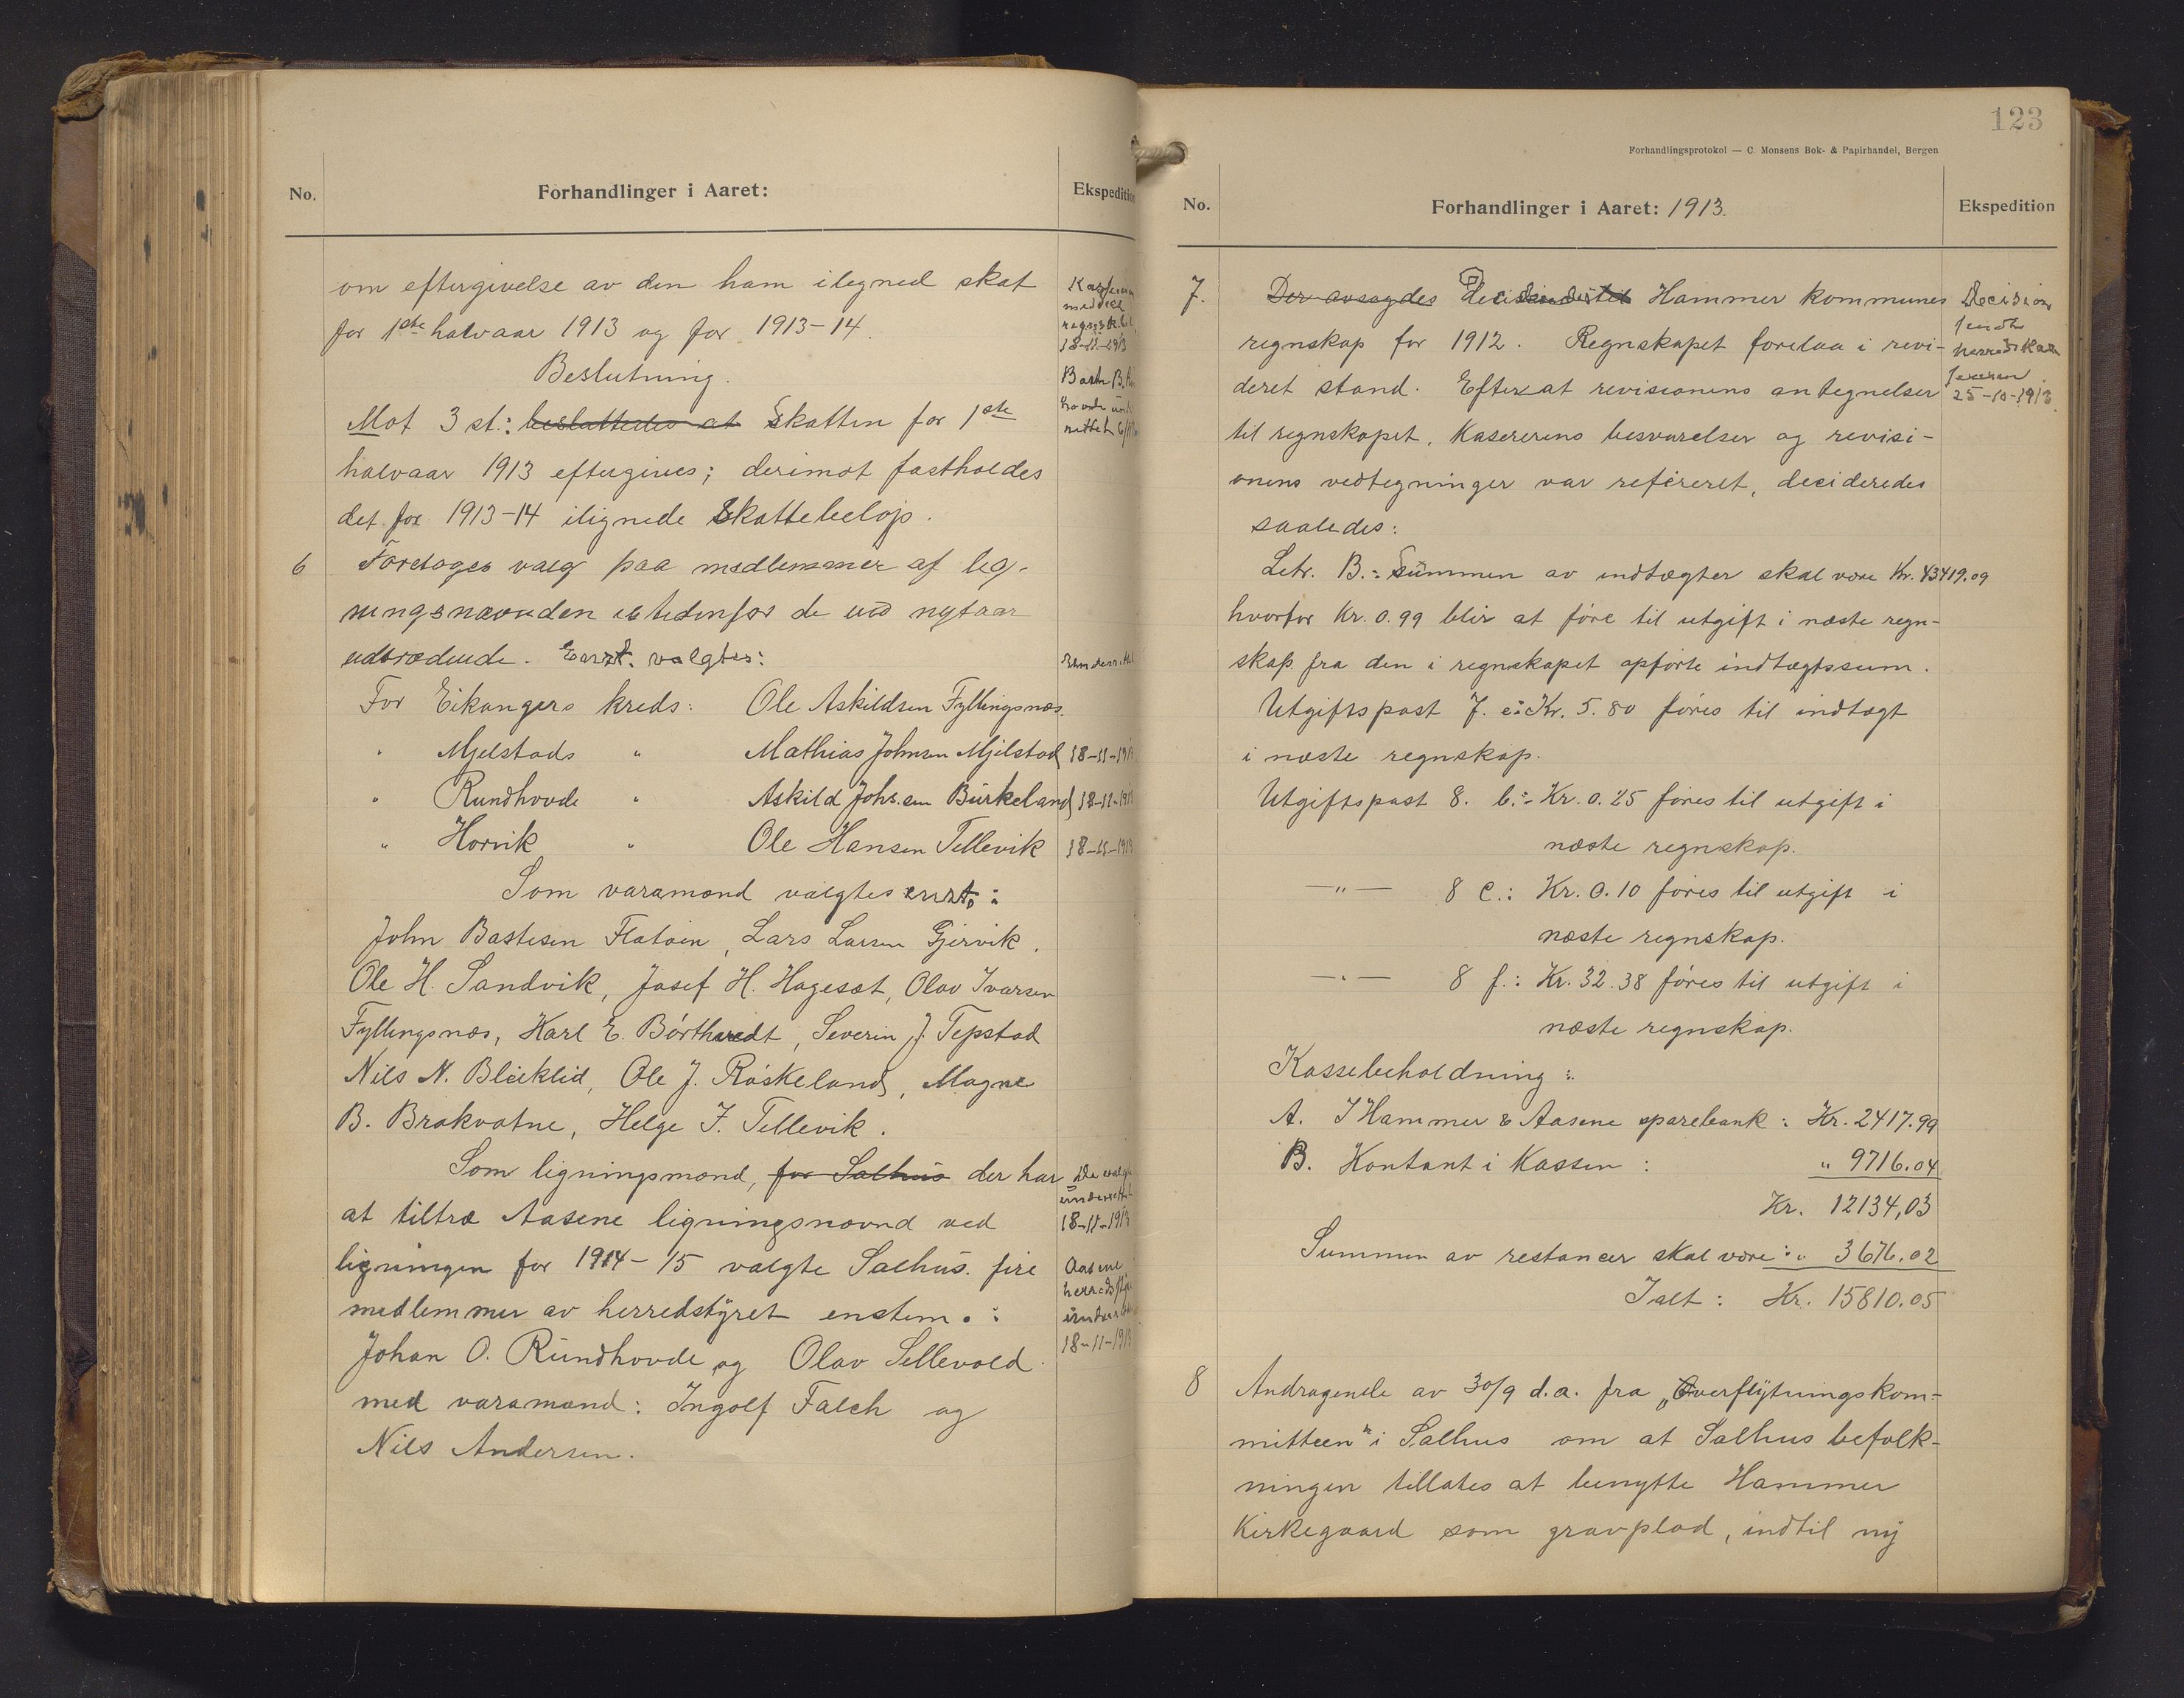 No.
Forhandlinger i Aaret:
Ekspedition
om eftergivelse av den ham ilegned skat
for 1ste halvaar 1913 og for 1913-14.
Beslutning.
Mot 3 st.: besluttedes at Skatten for 1ste
halvaar 1913 eftergives; derimot fastholdes
det for 1913-14 ilignede Skattebeløp.
18-11-1913
6 Foretoges valg paa medlemmer af lig-
ningsnævnden istedenfor de ved nytaar
udtrædende. Enst. valgtes:
For Eikangers kreds: Ole Askildsen Fyllingsnæs.
" Mjelstads " Mathias Johnsen Mjelstad 18-11-1913
" Rundhovde " Askild Johs.sen Burkeland 18-11-1913
" Horvik " Ole Hansen Tellevik 18-11-1913
Som varamænd valgtes enst.:
John Bastesen Flatøen, Lars Larsen Gjervik.
Ole H. Sandvik, Josef H. Hagesæt, Olav Ivarsen
Fyllingsnæs, Karl E. Børtveidt, Severin J. Tepstad
Nils N. Bleiklid, Ole J. Røskeland, Magne
B. Brakvatne, Helge J. Tellevik.
Som ligningsmænd, for Salhus der har
at tiltræ Aasene ligningsnævnd ved
ligningen for 1914-15 valgte Salhus fire
medlemmer av herredstyret enstem.:
Johan O. Rundhovde og Olav Sellevold
med varamænd: Ingolf Falch og
Nils Andersen.
De valgte
underrettet
18-11-1913
Aasene
18-11-1913
123
Forhandlingsprotokol — C. Monsens Bok- & Papirhandel, Bergen
No.
Forhandlinger i Aaret: 1913.
Ekspedition
7. Der avsagdes Hammer kommunes
regnskap for 1912. Regnskapet forelaa i revi-
deret stand. Efterat revisionens antegnelser
til regnskapet, Kasererens besvarelser og revisi-
onens vedtegninger var refereret, decideredes
saaledes:
Decision
sendt
herredskas-
sereren
25-10-1913.
Letr. B.: Summen av indtægter skal være Kr. 43419.09
hvorfor Kr. 0.99 blir at føre til utgift i næste regn-
skap fra den i regnskapet opførte indtægtssum.
Utgiftspost 7. e: Kr. 5.80 føres til indtægt
i næste regnskap.
Utgiftspost 8. b.: Kr. 0.25 føres til utgift i
næste regnskap.
—"— 8 c.: Kr. 0.10 føres til utgift i
næste regnskap.
—"— 8 f.: Kr. 32.38 føres til utgift i
næste regnskap.
Kassebeholdning:
A. I Hammer & Aasene sparebank: Kr. 2417.99
B. Kontant i Kassen: " 9716.04
Kr. 12134,03
Summen av restancer skal være: " 3676.02
Ialt: Kr. 15810.05
8 Andragende av 30/9 d.a. fra "Overflytningskom-
mitteen" i Salhus om at Salhus befolk-
ningen tillates at benytte Hammer
Kirkegaard som gravplad, indtil ny